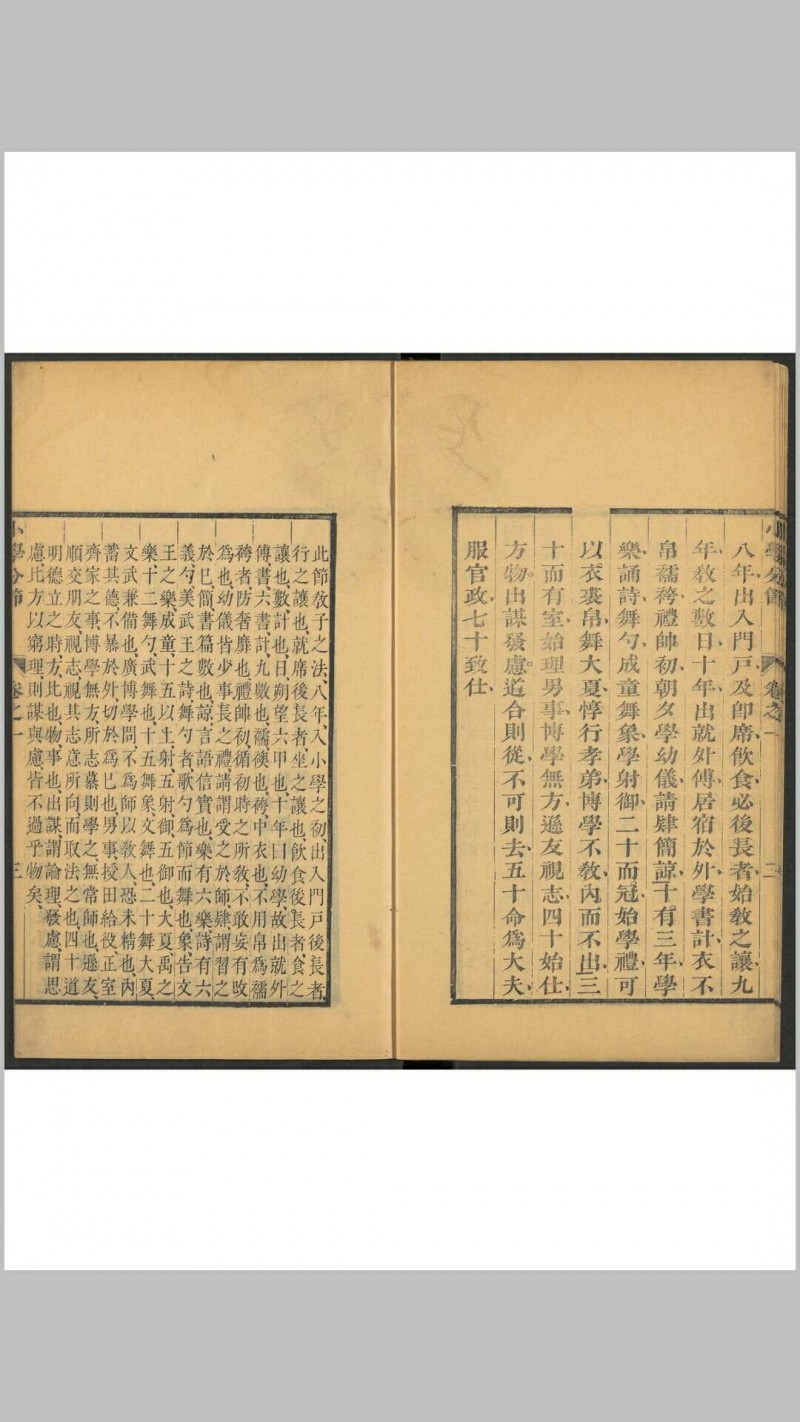 小學分節
卷之一
二
八年出入門戸及卽席飲食必後長者始教之讓九
年教之數日十年出就外傅居宿於外學書計衣不
帛襦袴禮帥初朝夕學幼儀請肄簡諒十有三年學
樂誦詩舞勺成童舞象學射御二十而冠始學禮可
以衣裘帛舞大夏惇行孝弟博學不教內而不出三
十而有室始理男事博學無方遜友視志四十始仕
方物出謀發慮道合則從不可則去五十命爲大夫
服官政七十致仕
此節教子之法八年入小學之初出入門戸後長者
行之讓也就席後長者坐之讓也飲食後長者食之
讓也數計也日朔望六甲也十年曰幼學故出就外
傅書六書計九數也襦襖也袴中衣也不用帛爲襦
袴者防奢靡也禮帥初循初時之所教不敢妄有改
爲也幼儀皆少事長之禮請謂受之於師肄謂習之
於已簡書篇數也諒言語信實也樂有六樂詩有六
義勺美武王之詩舞勺者歌勺爲節而舞也象告文
王之樂成童十五以上射五射御五御也大夏禹之
樂十二舞勺武舞也十五舞象文舞也二十舞大夏
文武兼備也廣博學問不爲師以教人恐未精也內
蓄其德不暴於外切於爲已也男事授田給役正室
齊家之事博學無方所志慕則學之無常師也遜友
順交朋友視志視其志意所向而取法之也四十道
明德立之時方比也物事也出謀謂論理發慮謂思
慮比方以窮理則謀與慮皆不過乎物矣
小學分節
卷之一
三